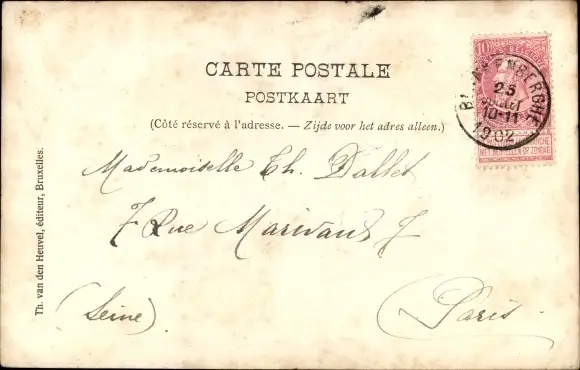 CARTE POSTALE
POSTKAART
(Côté réservé à l'adresse. — Zijde voor het adres alleen.)
10
BLANKENBERGHE
25
10-11
1902
NIET BESTELLEN OP ZONDAG
Mademoiselle Ch. Dallet
7 Rue Marivaux 7
(Seine)
Paris
Th. van den Heuvel, éditeur, Bruxelles.